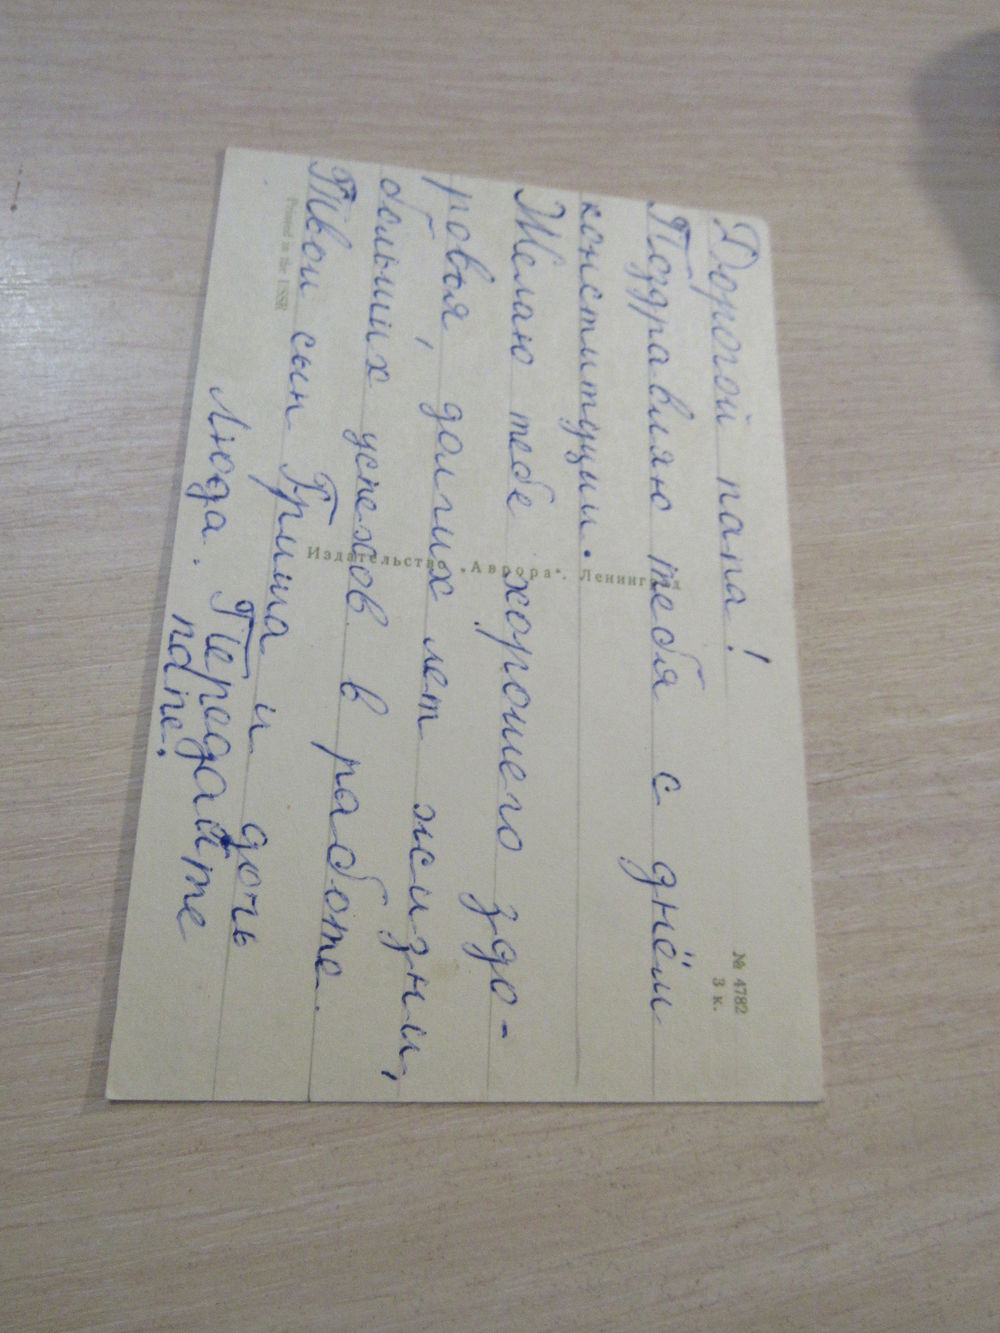 Дорогой папа!
Поздравляю тебя с днём
конституции.
Желаю тебе хорошего здо-
ровья, долгих лет жизни,
больших успехов в работе.
Твои сын Гриша и дочь
Люда. Передайте
папе.
№ 4782
3 к.
Издательство „Аврора“. Ленинград
Printed in the USSR